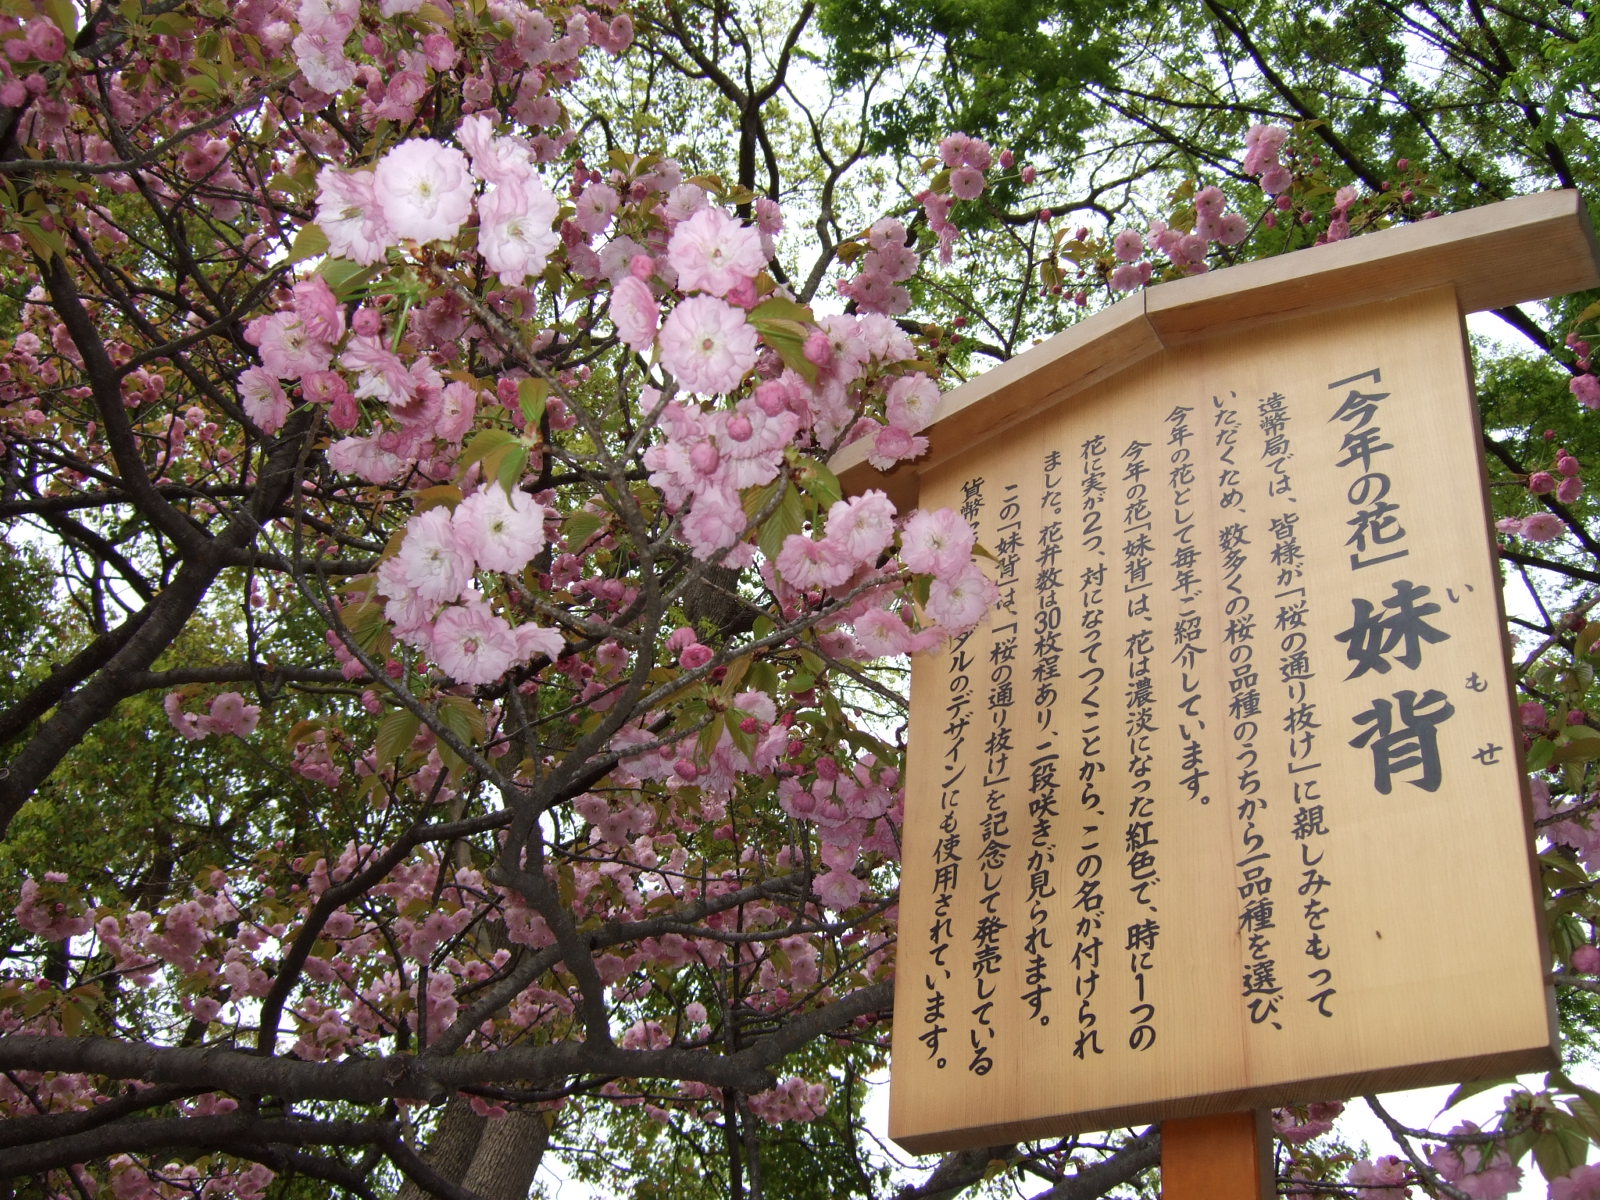 「今年の花」妹背
いもせ
造幣局では、皆様が「桜の通り抜け」に親しみをもって
いただくため、数多くの桜の品種のうちから一品種を選び、
今年の花として毎年ご紹介しています。
今年の花「妹背」は、花は濃淡になった紅色で、時に1つの
花に実が2つ、対になってつくことから、この名が付けられ
ました。花弁数は30枚程あり、二段咲きが見られます。
この「妹背」は、「桜の通り抜け」を記念して発売している
貨幣 ダルのデザインにも使用されています。